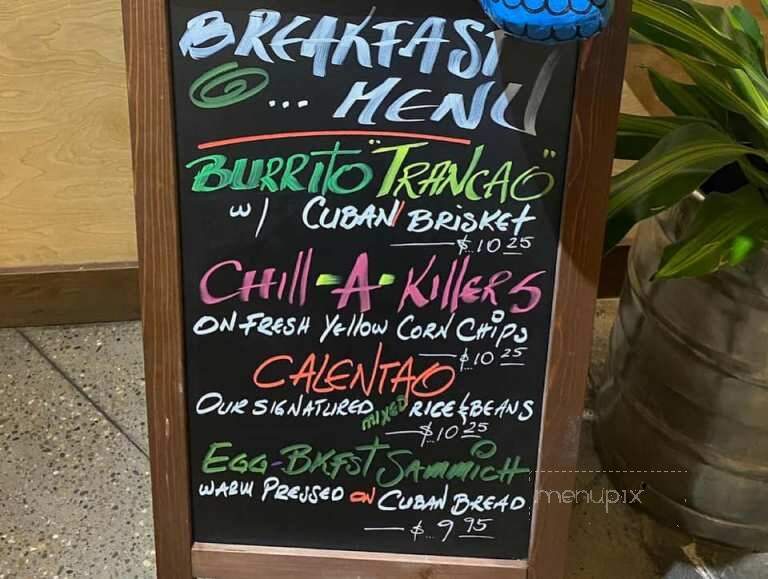 BREAKFAST
... MENU
BURRITO "TRANCAO"
w/ CUBAN BRISKET
$10 25
CHILL-A-KILLERS
ON FRESH YELLOW CORN CHIPS
$10 25
CALENTAO
OUR SIGNATURED MIXED RICE & BEANS
$10 25
EGG-BKFST SAMMICH
WARM PRESSED ON CUBAN BREAD
$ 9 95
menupix